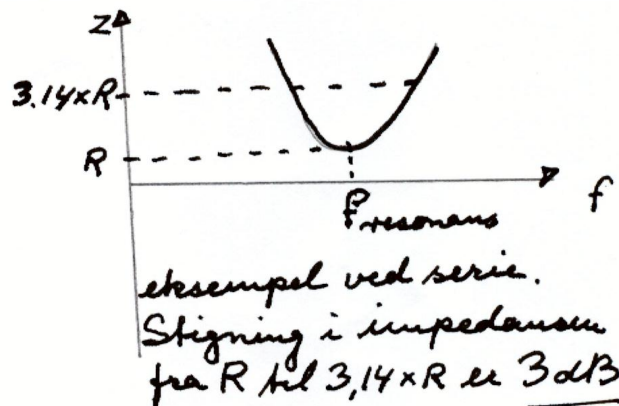 Z
3.14×R
R
f
fresonans
eksempel ved serie.
Stigning i impedansen
fra R til 3,14×R er 3dB